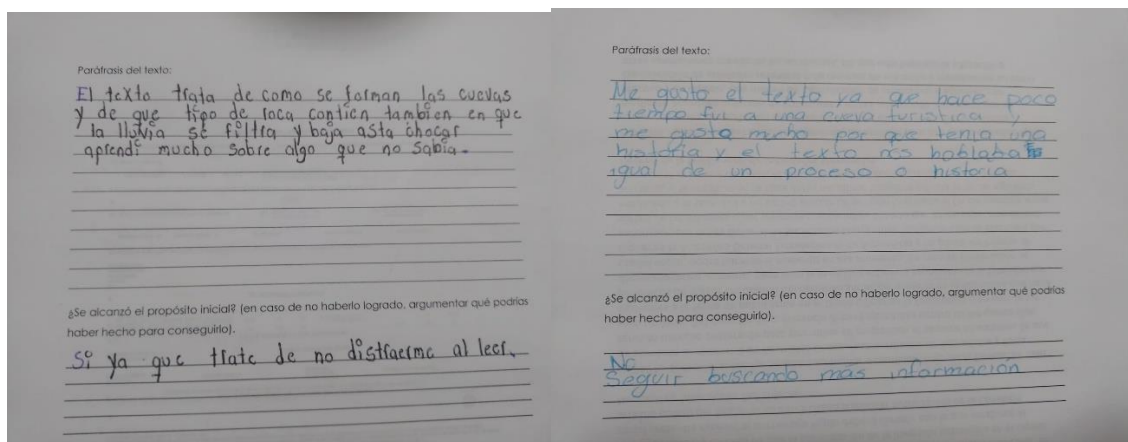 Paráfrasis del texto:
El texto trata de como se forman las cuevas
y de que tipo de roca contien tambien en que
la lluvia se filtra y baja asta chocar
aprendi mucho sobre algo que no sabia.
¿Se alcanzó el propósito inicial? (en caso de no haberlo logrado, argumentar qué podrías
haber hecho para conseguirlo).
Si ya que trate de no distraerme al leer.
Paráfrasis del texto:
Me gusto el texto ya qe hace poco
tiempo fui a una cueva turistica y
me gusto mucho por que tenia una
historia y el texto nos hablaba
igual de un proceso o historia
¿Se alcanzó el propósito inicial? (en caso de no haberlo logrado, argumentar qué podrías
haber hecho para conseguirlo).
No
Seguir buscando más información